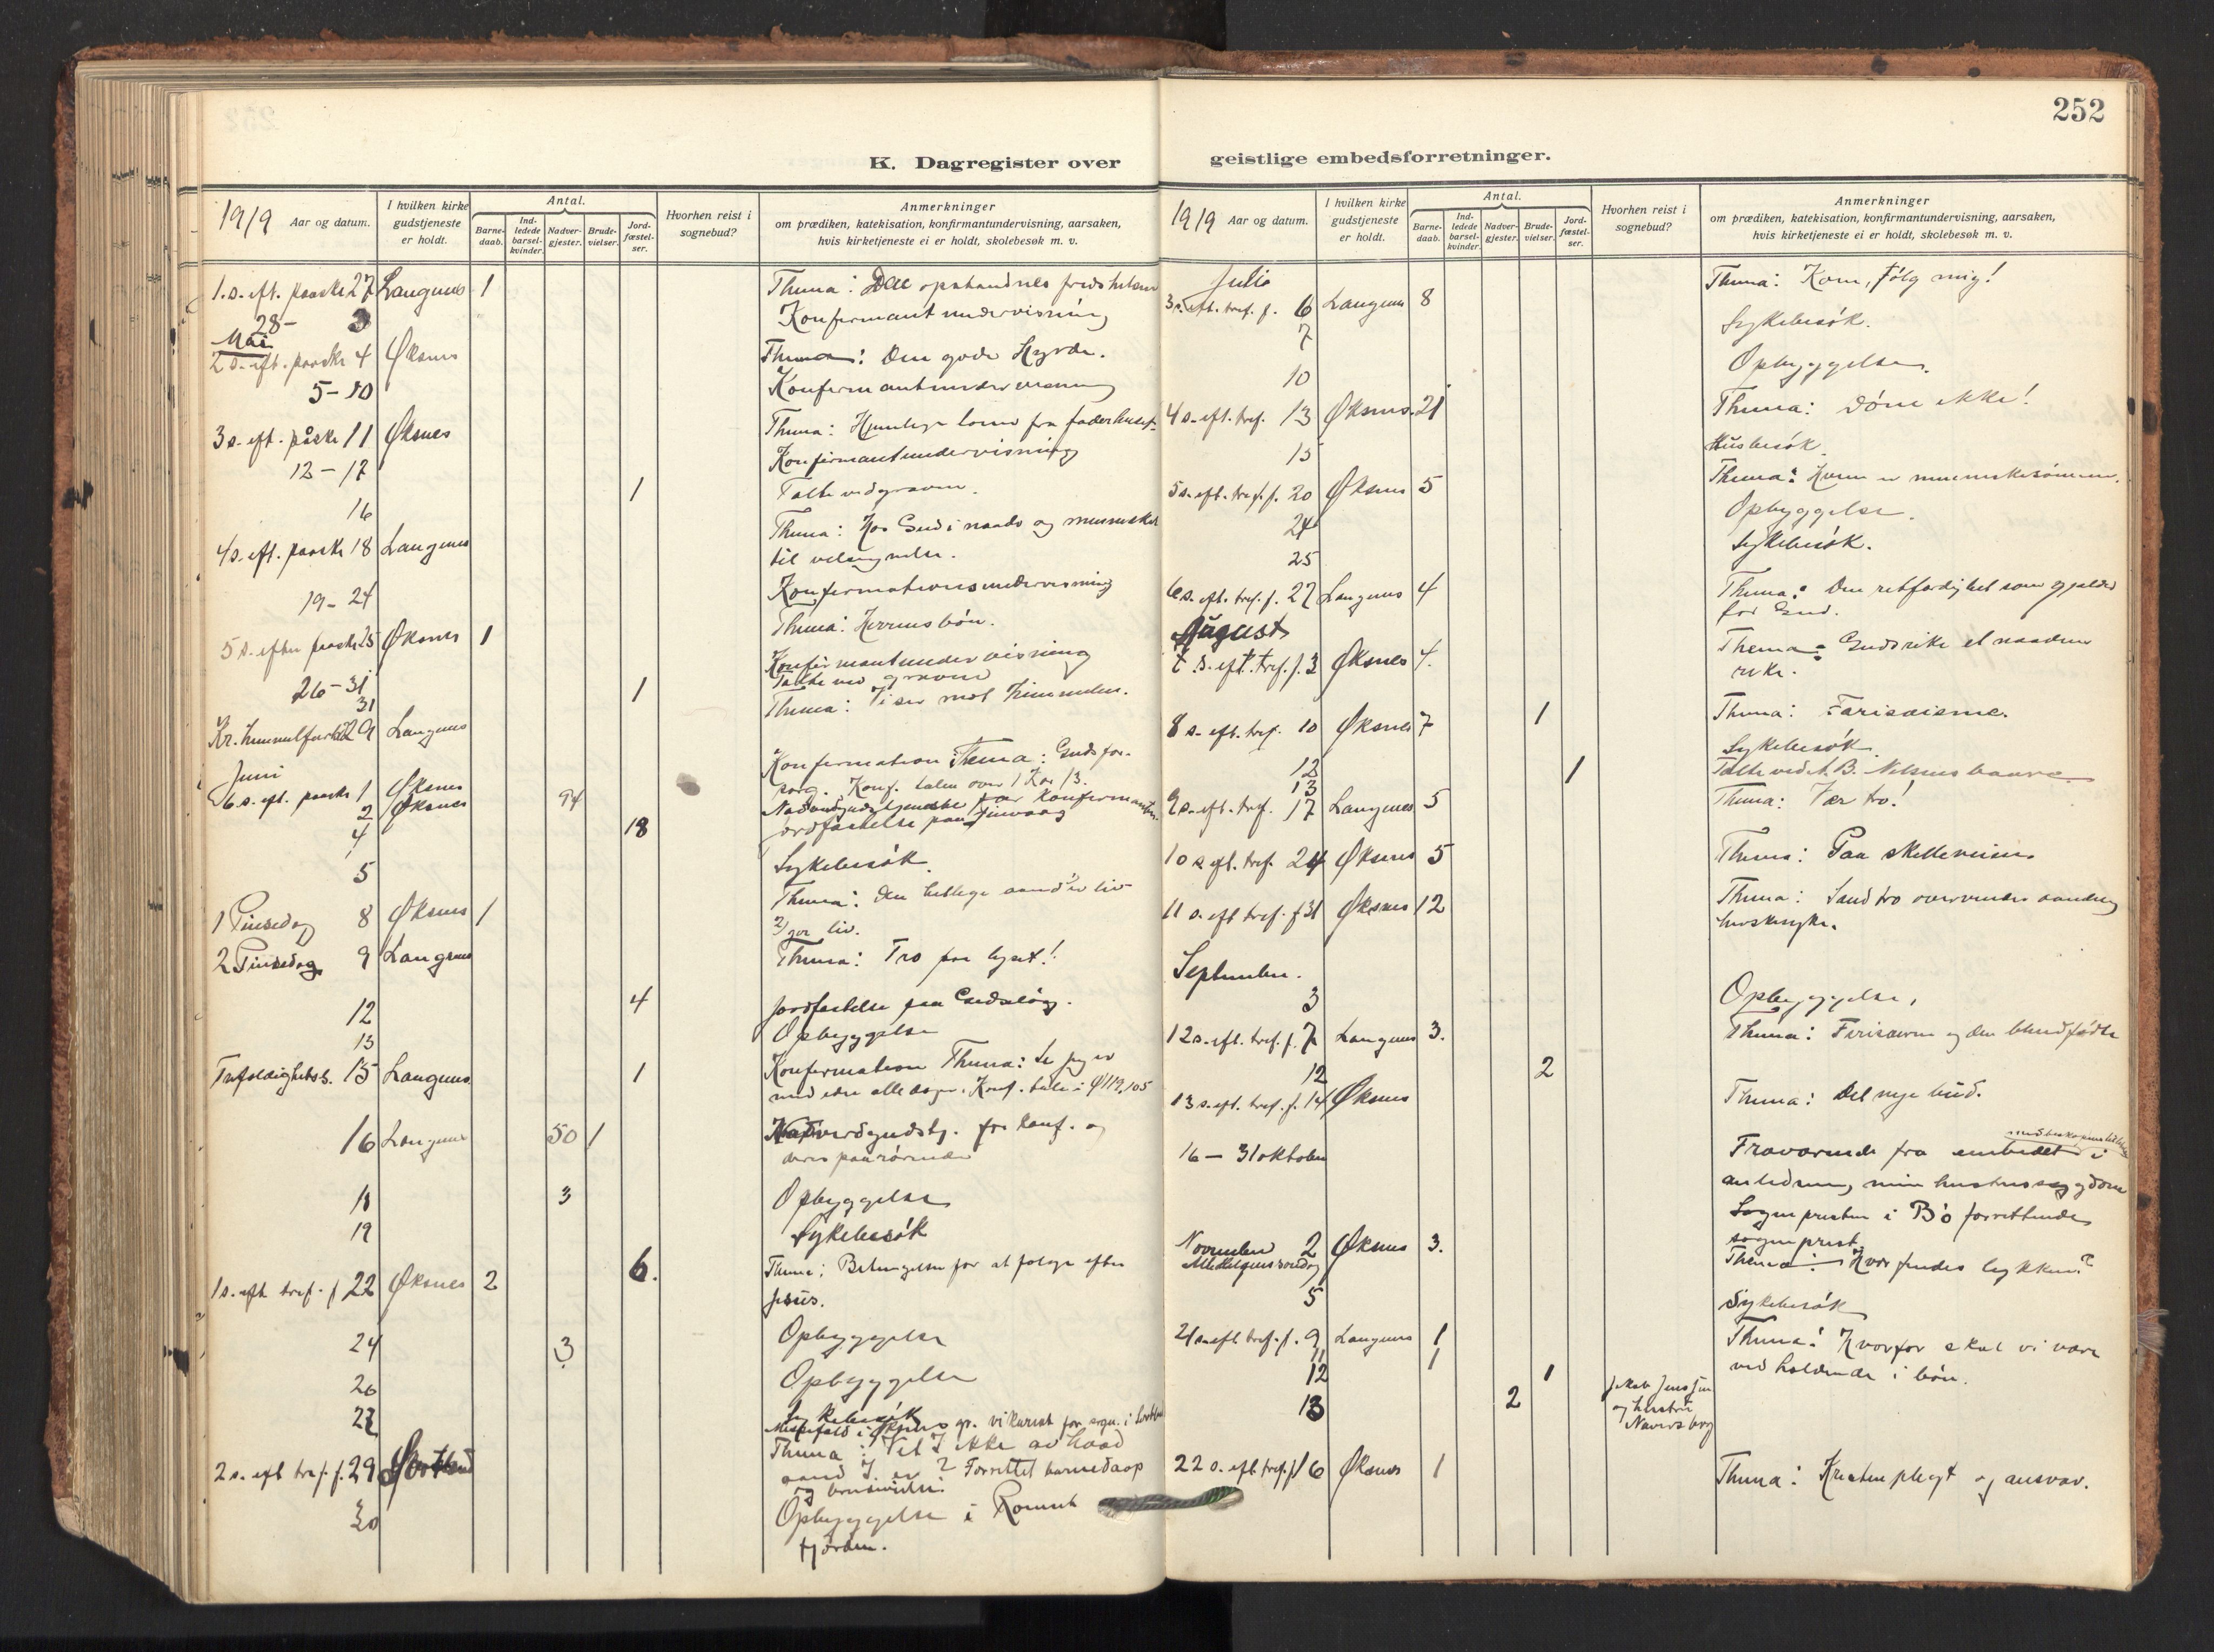 252
K. Dagregister over geistlige embedsforretninger.
1919 Aar og datum.
I hvilken kirke gudstjeneste er holdt.
Antal.
Barne-daab.
Ind-ledede barsel-kvinder.
Nadver-gjester.
Brude-vielser.
Jord-fæstel-ser.
Hvorhen reist i sognebud?
Anmerkninger
om prædiken, katekisation, konfirmantundervisning, aarsaken,
hvis kirketjeneste ei er holdt, skolebesøk m. v.
1. s. eft. paaske 27 Langenes 1 Thema: Den opstandnes
28 - 3 Konfirmantundervisning
Mai
2 s. eft. paaske 4 Øksnes Thema: Den gode Hyrde.
5-10 Konfirmantundervisning
3 s. eft. påske 11 Øksnes Thema: fra faderhuset
12-17 Konfirmantundervisning
16 1 Talte ved graven.
4 s. eft. paaske 18 Langenes Thema: Hos Gud i naade og mennesker
til velsignelse.
19-24 Konfirmationsundervisning
5 s. efter paaske 25 Øksnes 1 Thema: Herrens bøn.
26-31 Konfirmantundervisning
31 1 Talte ved graven
Kr. himmelfart 29 Langenes Thema: Vi ser mot himmelen.
Juni
6 s. eft. paaske 1 Øksnes Konfirmation Thema: Guds for-
sorg. Konf. talen over 1 Kor 13.
2 Øksnes 94 for konfirmanten
4 18 jordfæstelse paa
5 Sykebesøk.
1 Pinsedag 8 Øksnes 1 Thema: Den hellige aand er liv
2) gir liv.
2 Pinsedag 9 Langenes Thema: Tro paa lyset!
12 4 Jordfæstelse paa
13 Opbyggelse
Trefoldighets s. 15 Langenes 1 Konfirmation Thema: Se jeg er
med eder alle dager. Konf. tale: Ψ 119,105
16 Langenes 50 1 Nadverdgudstj. for konf. og
deres paarørende
18 3 Opbyggelse
19 Sykebesøk
1 s. eft tref. f 22 Øksnes 2 6. Thema: Betingelsen for at følge efter
Jesus.
24 3 Opbyggelse
26 Opbyggelse
27 Sykebesøk
2 s. eft tref. f. 29 Sortland Thema: Vet I ikke av hvad
aand I er? Forrettet barnedaap
og
30 Opbyggelse i
fjorden.
1919 Aar og datum.
I hvilken kirke gudstjeneste er holdt.
Antal.
Barne-daab.
Ind-ledede barsel-kvinder.
Nadver-gjester.
Brude-vielser.
Jord-fæstel-ser.
Hvorhen reist i sognebud?
Anmerkninger
om prædiken, katekisation, konfirmantundervisning, aarsaken,
hvis kirketjeneste ei er holdt, skolebesøk m. v.
Juli
3 s. eft. tref. f. 6 Langenes 8 Thema: Kom, følg mig!
7 Sykebesøk.
10 Opbyggelse.
4 s. eft. tref. 13 Øksnes 21 Thema: Døm ikke!
15 Husbesøk.
5 s. eft. tref. f. 20 Øksnes 5 Thema: Hvem er menneskesønnen.
24 Opbyggelse.
25 Sykebesøk.
6 s. eft. tref. f. 27 Langenes 4 Thema: Den retfærdighet som gjelder
for Gud.
August
7 s. eft. tref. f. 3 Øksnes 4. Thema: Gudsrike et naadens
rike.
8 s. eft. tref. 10 Øksnes 7 1 Thema: Farisæisme.
12 Sykebesøk.
13 1 Talte ved A. B. Nilsens baare
9 s. eft. tref. 17 Langenes 5 Thema: Vær tro!
10 s eft. tref. 24 Øksnes 5 Thema: Paa skilleveien
11 s. eft tref. f 31 Øksnes 12 Thema: Sand tro overvinder aandelig
September.
3 Opbyggelse,
12 s. eft. tref. f. 7 Langenes 3. Thema: Farisæeren og den blindfødte
12 2
13 s. eft. tref. f. 14 Øksnes Thema: Det nye bud.
16 - 31 oktober Fraværende fra embedet i
anledning min hustrus sygdom
Sognepresten i Bø forrettende
sogneprest.
November 2 Øksnes 3. Thema: Hvor findes lykken?
Allehelgenssøndag
5 Sykebesøk
21 s. eft tref. f. 9 Langenes 1 Thema: Hvorfor skal vi være
vedholdende i bøn.
11 1
12 1
13 2 Jakob Jensen
og hustru
22 s. eft. tref. f 16 Øksnes 1 Thema: Kristenpligt og ansvar.